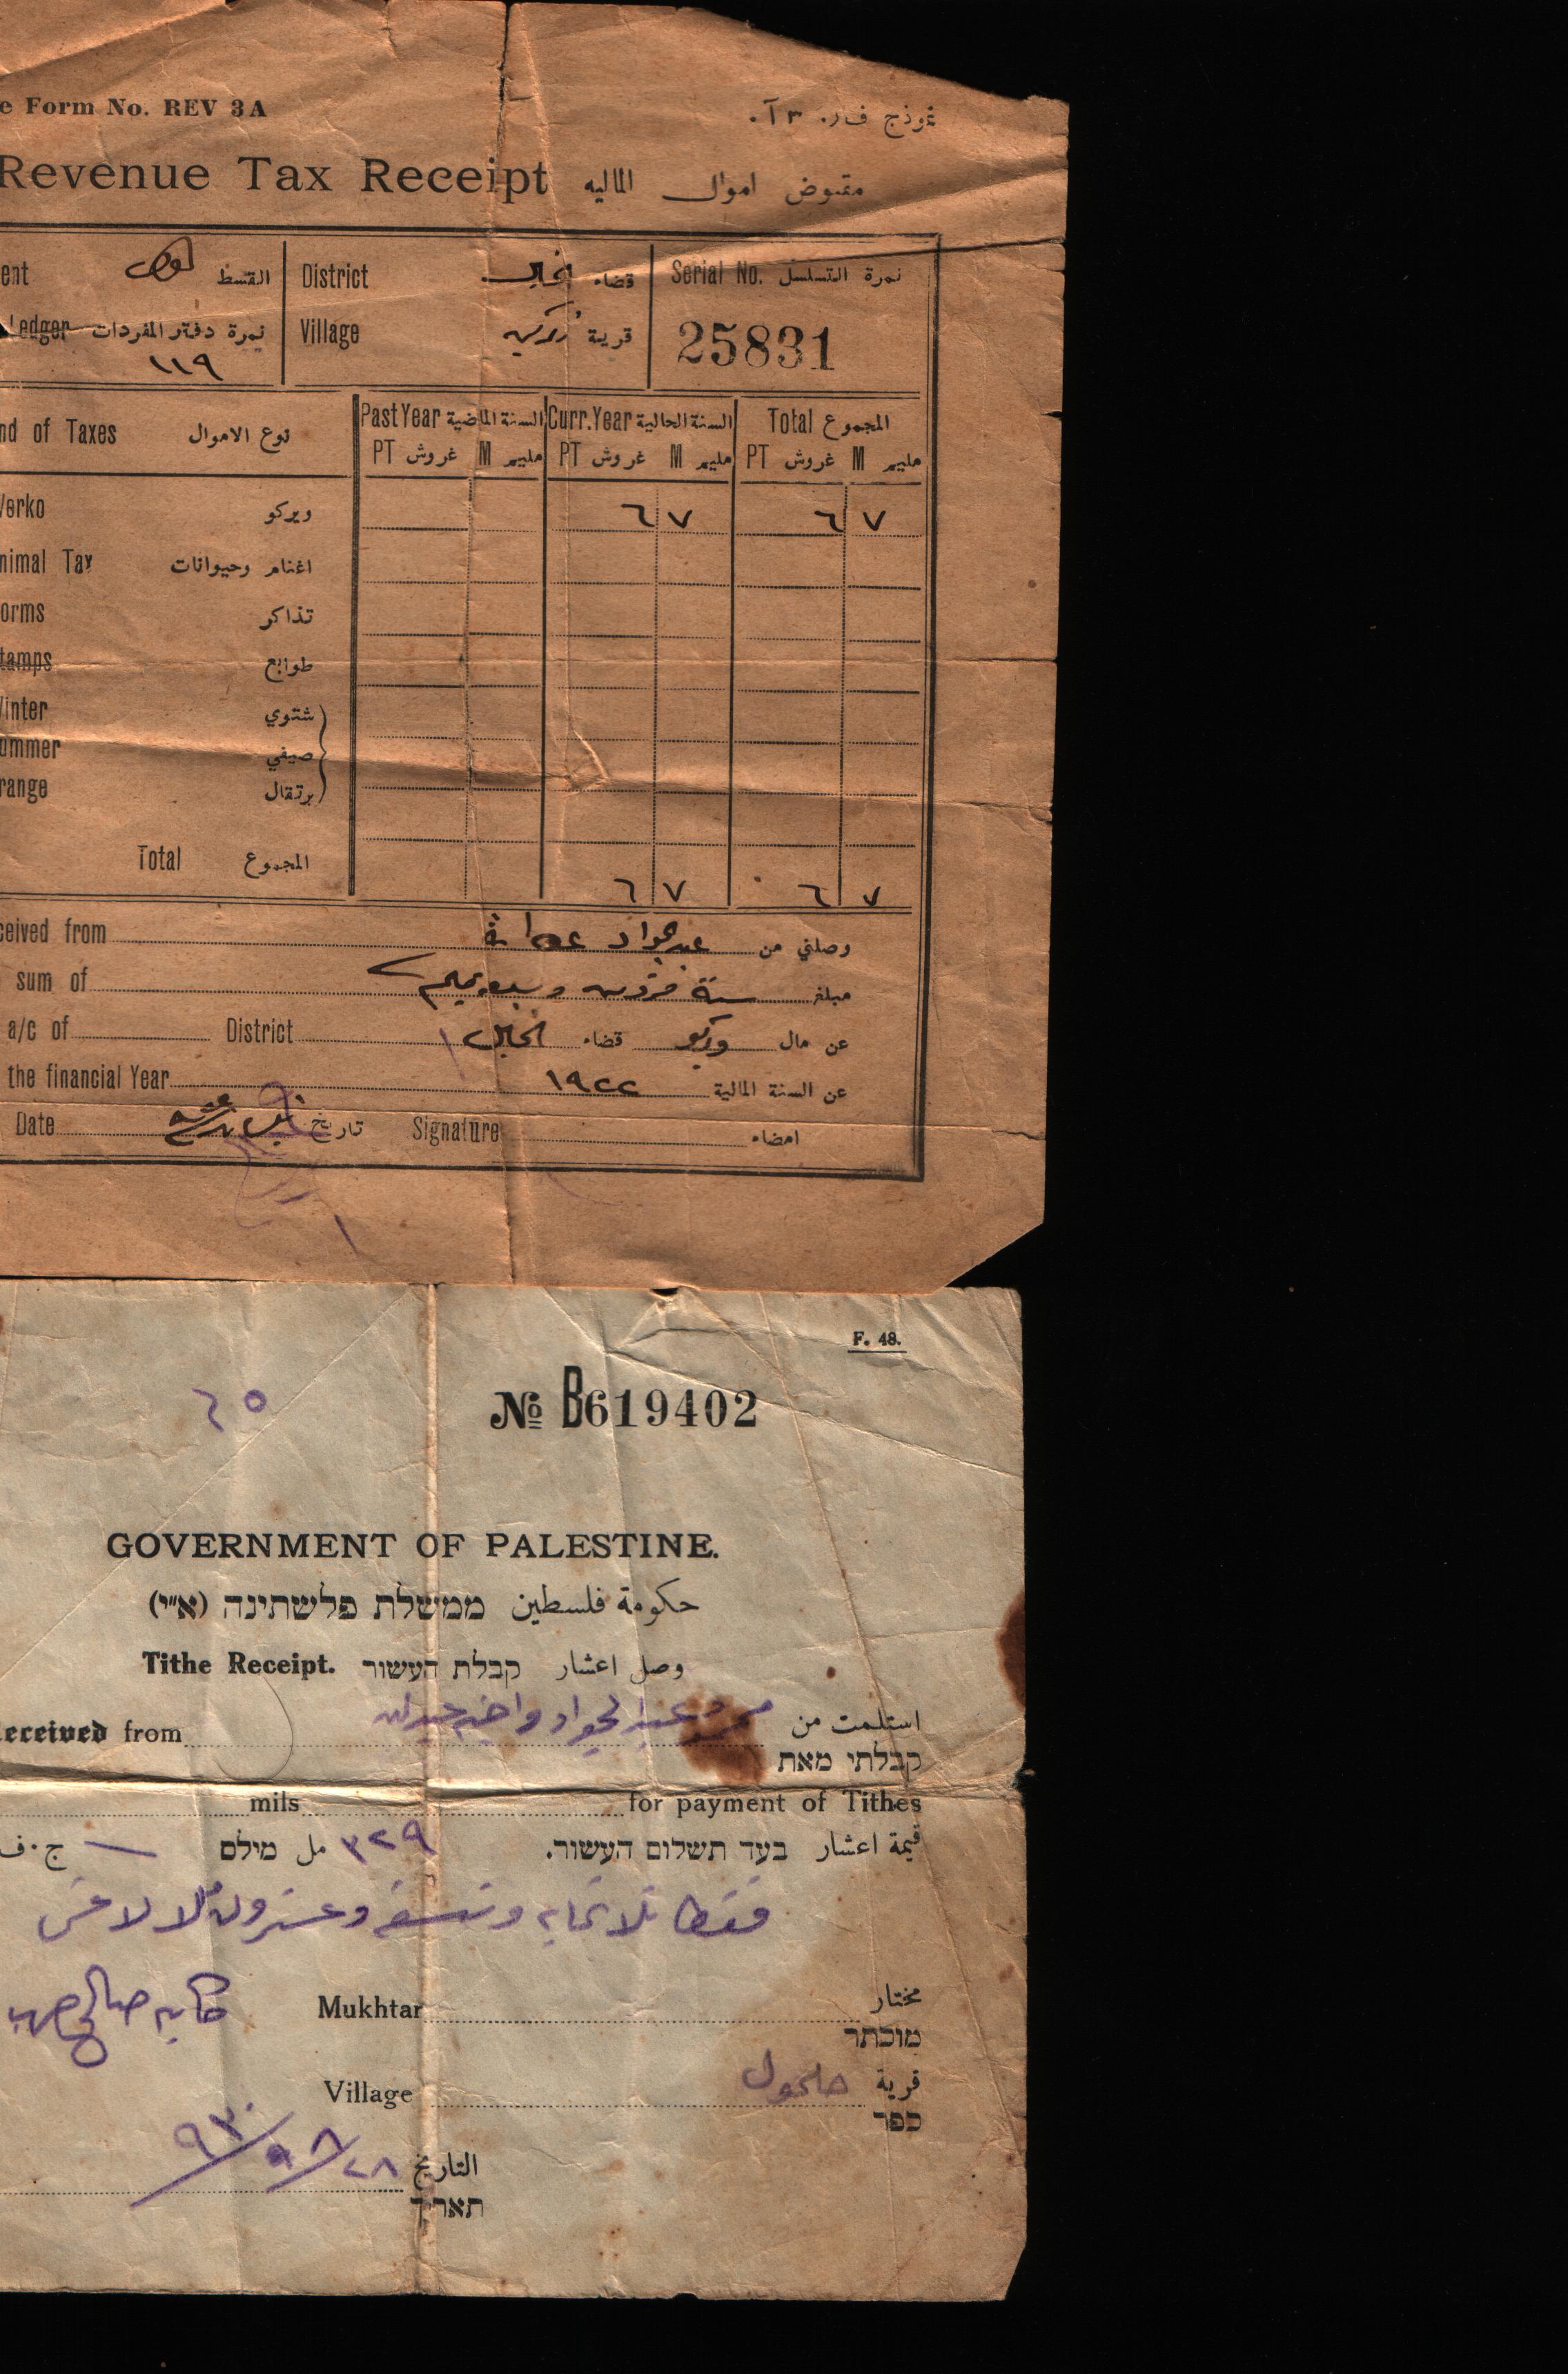 e Form No. REV 3A نموذج ف.ر. ٣ آ.
Revenue Tax Receipt مقبوض اموال الماليه
ent القسط District قضاء الخليل Serial No. نمرة التسلسل
Ledger نمرة دفتر المفردات Village قرية 25831
١١٩
nd of Taxes نوع الاموال Past Year السنة الماضية Curr. Year السنة الحالية Total المجموع
PT غروش M مليم PT غروش M مليم PT غروش M مليم
Verko ويركو ٦ ٧ ٦ ٧
nimal Tax اغنام وحيوانات
orms تذاكر
tamps طوابع
Winter شتوي
ummer صيفي
range برتقال
Total المجموع ٦ ٧ ٦ ٧
ceived from وصلني من عبد الجواد
sum of مبلغ ستة قروش وسبعة مليم
a/c of District عن مال ويركو قضاء الخليل
the financial Year عن السنة المالية ١٩٢٢
Date تاريخ Signature امضاء
F. 48.
٦٥ No B619402
GOVERNMENT OF PALESTINE.
حكومة فلسطين ממשלת פלשתינה (א״י)
Tithe Receipt. קבלת העשור وصل اعشار
Received from استلمت من محمد عبد الجواد واخيه عبدالله
קבלתי מאת
mils for payment of Tithes
قيمة اعشار בעד תשלום העשור. ٣٢٩ مل מילס — ج.ف
فقط ثلاثماية وتسعة وعشرون ملا لا غير
Mukhtar مختار
מוכתר
Village قرية حلحول
כפר
التاريخ ٢٨/٩/٩٣٠
תאריך